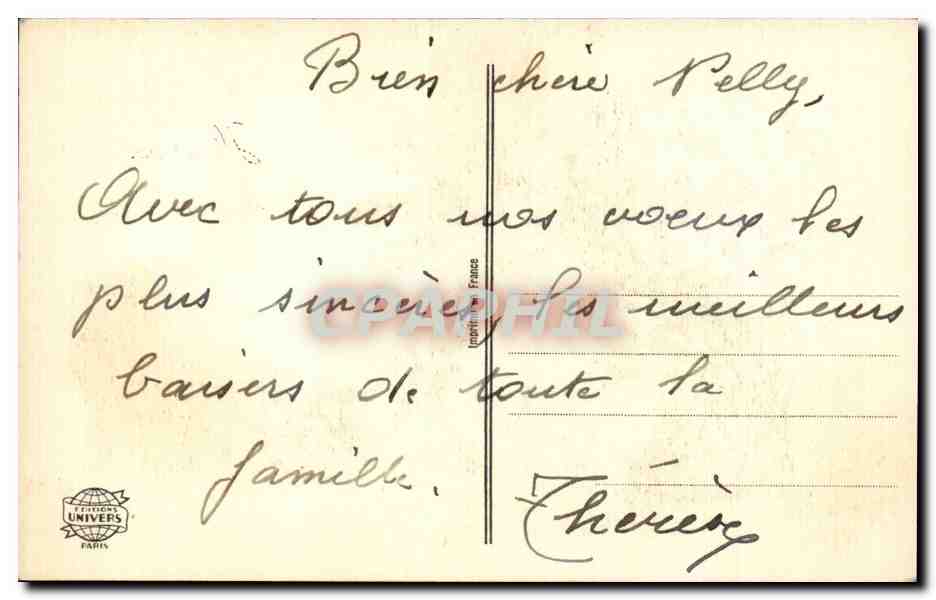 Bien chère Nelly,
Avec tous nos voeux les
plus sincères, les meilleurs
baisers de toute la
famille.
Thérèse
Imprimé en France
CPAPHIL
EDITIONS
UNIVERS
PARIS